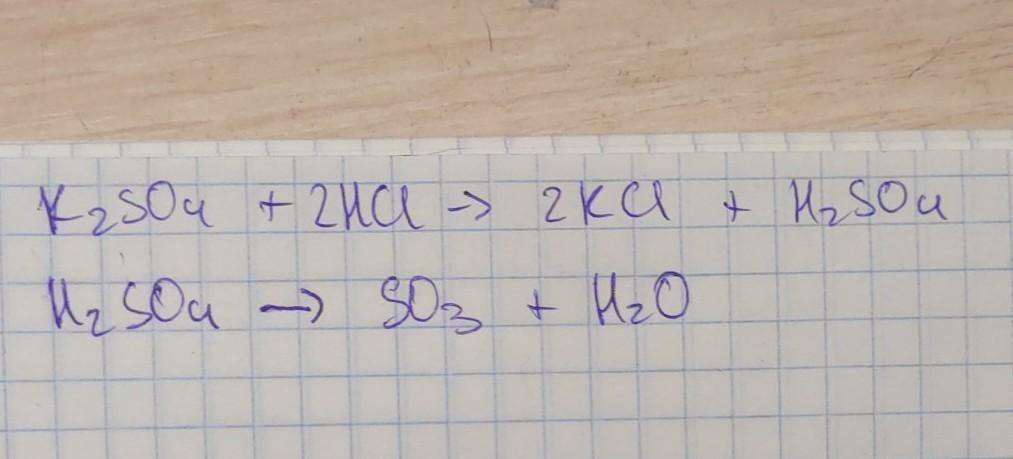 K₂SO₄ + 2HCl → 2KCl + H₂SO₄
H₂SO₄ → SO₃ + H₂O